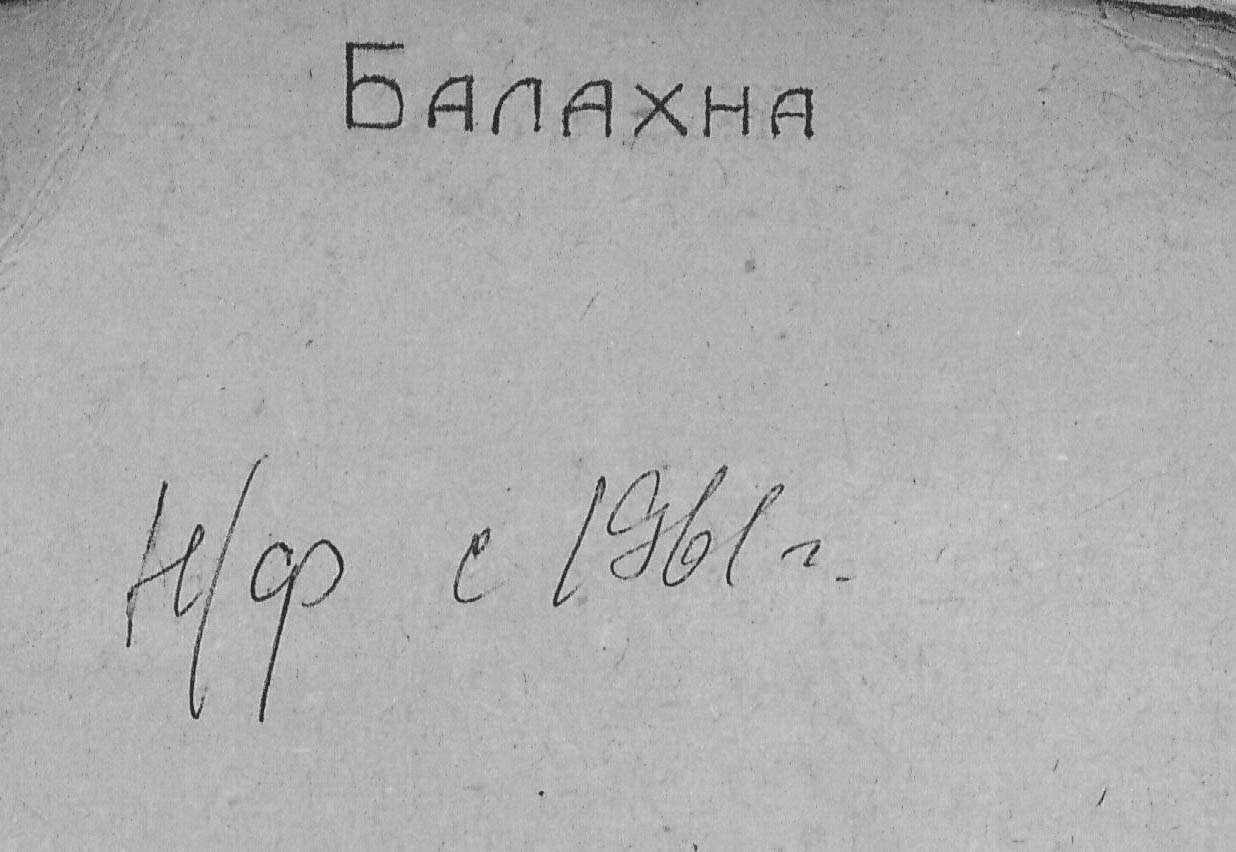 Балахна
н/ф с 1961 г.